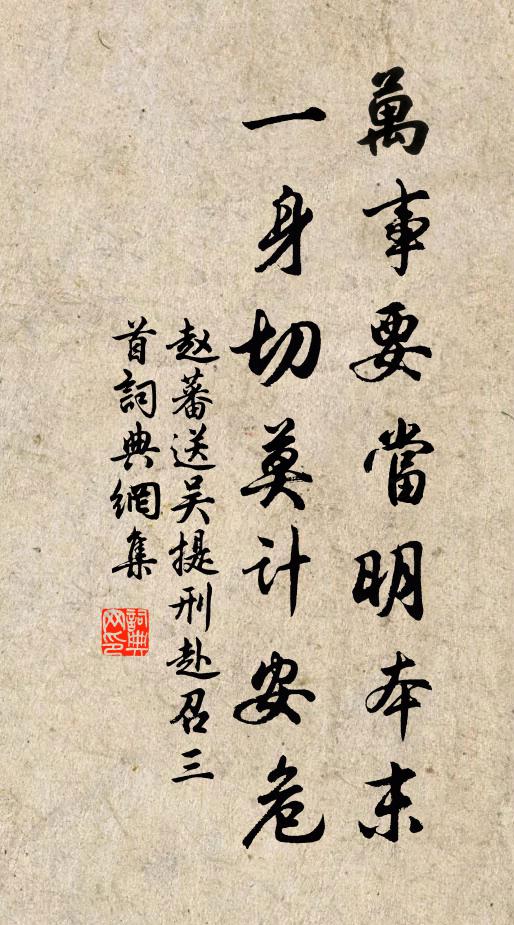 萬事要當明本末
一身切莫計安危
赵蕃送吴提刑赴召三
首詞典網集
詞典网印